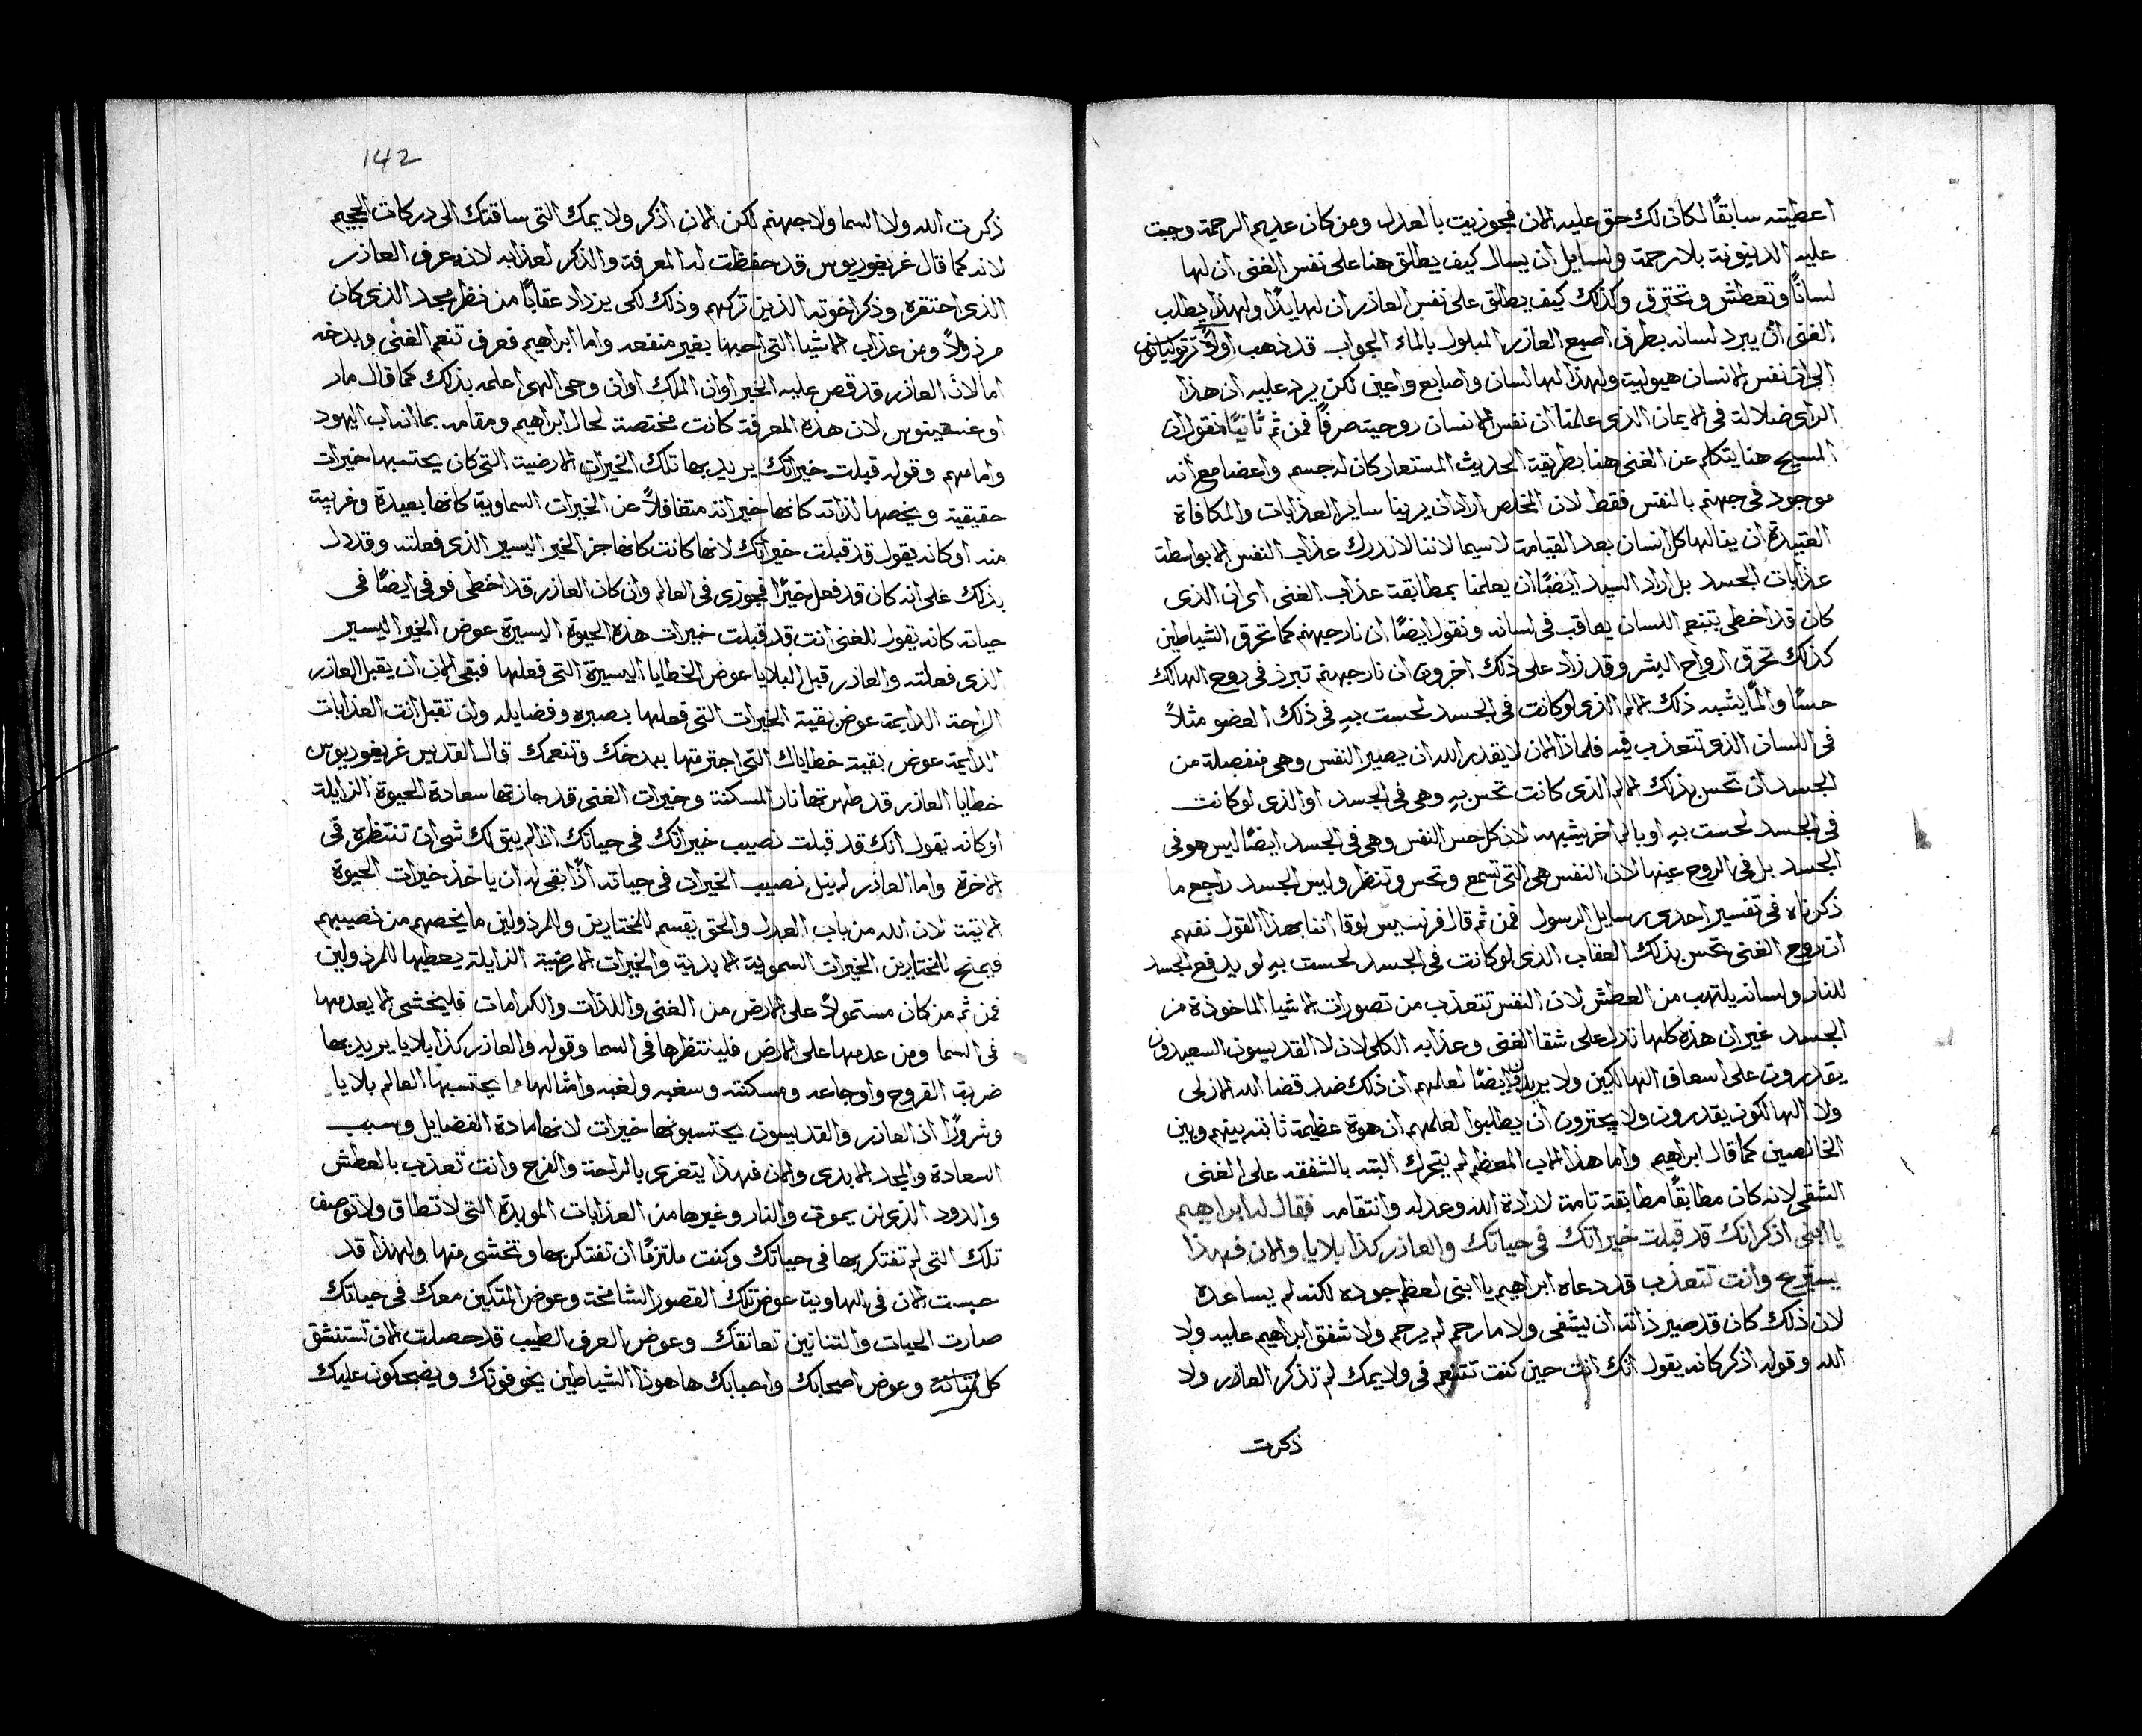 اعطيته سابقًا لكان لك حق عليه الان فجوزيت بالعدل ومن كان عديم الرحمة وجبت
عليه الدينونة بلا رحمة ولسايل أن يسال كيف يطلق هنا على نفس الغني ان لها
لسانًا وتعطش وتحترق وكذلك كيف يطلق على نفس العازر ان لها يدًا ولهذا يطلب
الغني أن يبرد لسانه بطرف اصبع العازر المبلول بالماء الجواب قد ذهب اولًا ترتوليانوس
الى ان نفس الانسان هيولية ولهذا لها لسان واصابع واعين لكن يرد عليه ان هذا
الراي ضلالة في الايمان الذي علمنا أن نفس الانسان روحية صرفًا فمن ثم ثانيًا نقول ان
المسيح هنا يتكلم عن الغني هنا بطريقة الحديث المستعار كان له جسم واعضا مع انه
موجود في جهنم بالنفس فقط لان المخلص اراد ان يرينا ساير العذابات والمكافاة
العتيدة ان ينالها كل انسان بعد القيامة لاسيما لاننا لا ندرك عذاب النفس الا بواسطة
عذابات الجسد بل اراد السيد ايضًا ان يعلمنا بمطابقة عذاب الغني اي ان الذي
كان قد اخطى بتنعم اللسان يعاقب في لسانه ونقول ايضًا ان نار جهنم كما تحرق الشياطين
كذلك تحرق ارواح البشر وقد زاد على ذلك اخرون ان نار جهنم تبرز في روح الهالك
حسًا والمًا يشبه ذلك الالم الذي لو كانت في الجسد لحست بهِ في ذلك العضو مثلاً
في اللسان الذي تتعذب فيه فلماذا الان لا يقدر الله ان يصير النفس وهي منفصلة من
الجسد ان تحس بذلك الالم الذي كانت تحس بهِ وهي في الجسد او الذي لو كانت
في الجسد لحست بهِ او بالم اخر يشبهه لان كل حس النفس وهي في الجسد ايضًا ليس هو في
الجسد بل في الروح عينها لان النفس هي التي تسمع وتحس وتنظر وليس الجسد راجع ما
ذكرناه في تفسير احدى رسايل الرسول فمن ثم قال فرنسيس لوقا انفا بهذا القول نفهم
ان روح الغني تحس بذلك العقاب الذي لو كانت في الجسد لحست بهِ لو يدفع الجسد
للنار ولسانه يلتهب من العطش لان النفس تتعذب من تصورات الاشيا الماخوذة من
الجسد غير ان هذه كلها تدل على شقا الغني وعذابه الكلي لان لا القديسون السعيدون
يقدرون على اسعاف الهالكين ولا يريدون ايضًا لعلمهم ان ذلك ضد قضا الله الازلي
ولا الهالكون يقدرون ولا يجترون أن يطلبوا لعلمهم ان هوة عظيمة ثابته بينهم وبين
الخالصين كما قال ابراهيم واما هذا الاب المعظم لم يتحرك البته بالشفقه على الغني
الشقي لانه كان مطابقًا مطابقة تامة لارادة الله وعدله وانتقامه فقال له ابراهيم
يا ابني اذكر انك قد قبلت خيراتك في حياتك والعازر كذا بلايا والان فهذا
يستريح وانت تتعذب قد دعاه ابراهيم يا ابني لعظم جوده لكنه لم يساعده
لان ذلك كان قد صير ذاته ان ليشفى ولا مارحم لم يرحم ولا شفق ابراهيم عليه ولا
الله وقوله اذكر كانه يقول انك انت حين كنت تتنعم في ولايمك لم تذكر العازر ولا
ذكرت
142
ذكرت الله ولا السما ولا جهنم لكن الان اذكر ولايمك التي ساقتك الى دركات الجحيم
لانه كما قال غريغوريوس قد حفظت له المعرفة والذكر لعذابه لانه عرف العازر
الذي احتقره وذكر اخوته الذين تركهم وذلك لكي يزداد عقابًا من نظر مجد الذي كان
مرذولًا ومن عذاب الاشيا التي احبها بغير منفعه واما ابراهيم فعرف تنعم الغني وبدخه
اما لان العازر قد قص عليه الخبر او ان الملك او ان وحي الهي اعلمه بذلك كما قال مار
اوغسطينوس لان هذه المعرفة كانت مختصة لحال ابراهيم ومقامه بما انه اب اليهود
وامامهم وقوله قبلت خيراتك يريد بها تلك الخيرات الارضية التي كان يحتسبها خيرات
حقيقية ويخصها لذاته كانها خيراته متغافلاً عن الخيرات السماوية كانها بعيدة وغريبة
منه او كانه يقول قد قبلت خيراتك لانها كانت كانها جزا الخير اليسير الذي فعلته وقد دل
بذلك على انه كان قد فعل خيرًا فجوزي في العالم وان كان العازر قد اخطى فوفي ايضًا في
حياته كانه يقول للغني انت قد قبلت خيرات هذه الحيوة اليسيرة عوض الخير اليسير
الذي فعلته والعازر قبل البلايا عوض الخطايا اليسيرة التي فعلها فبقى الان أن يقبل العازر
الراحة الدايمة عوض بقية الخيرات التي فعلها بصبره وفضايله وان تقبل انت العذابات
الدايمة عوض بقية خطاياك التي اجترمتها ببدخك وتنعمك قال القديس غريغوريوس
خطايا العازر قد طهرتها نار المسكنة وخيرات الغني قد جازتها سعادة الحيوة الزايلة
او كانه يقول انك قد قبلت نصيب خيراتك في حياتك اذًا لم يبق لك شي ان تنتظره في
الاخرة واما العازر لم ينل نصيب الخيرات في حياته اذًا بقي له ان ياخذ خيرات الحيوة
الاتية لان الله من باب العدل والحق يقسم للمختارين وللمرذولين ما يخصهم من نصيبهم
فيمنح للمختارين الخيرات السموية الابدية والخيرات الارضية الزايلة يعطيها للمرذولين
فمن ثم من كان مستمولاً على الارض من الغنى واللذات والكرامات فليخشى الا يعدمها
في السما ومن عدمها على الارض فلينتظرها في السما وقوله والعازر كذا بلايا يريد بها
ضربة القروح واوجاعه ومسكنته وسغبه ولغبه وامثالها ما يحتسبها العالم بلايا
وشرورًا اذ العازر والقديسون يحتسبونها خيرات لانها مادة الفضايل وسبب
السعادة والمجد الابدي والان فهذا يتعزى بالراحة والفرح وانت تعذب بالعطش
والدود الذي لن يموت والنار وغيرها من العذابات الموبدة التي لا تطاق ولا توصف
تلك التي لم تفتكر بها في حياتك وكنت ملتزمًا ان تفتكر بها وتخشى منها ولهذا قد
حبست الان في الهاوية عوض تلك القصور الشامخة وعوض المتكين معك في حياتك
صارت الحيات والتنانين تعانقك وعوض العرف الطيب قد حصلت الان تستنشق
كل نتانة وعوض اصحابك واحبابك ها هوذا الشياطين يخوفونك ويضحكون عليك